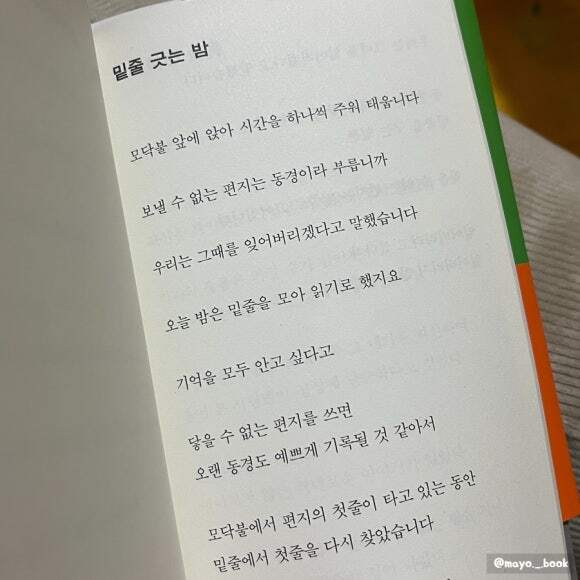 밑줄 긋는 밤
모닥불 앞에 앉아 시간을 하나씩 주워 태웁니다
보낼 수 없는 편지는 동경이라 부릅니까
우리는 그때를 잊어버리겠다고 말했습니다
오늘 밤은 밑줄을 모아 읽기로 했지요
기억을 모두 안고 싶다고
닿을 수 없는 편지를 쓰면
오랜 동경도 예쁘게 기록될 것 같아서
모닥불에서 편지의 첫줄이 타고 있는 동안
밑줄에서 첫줄을 다시 찾았습니다
@mayo._book